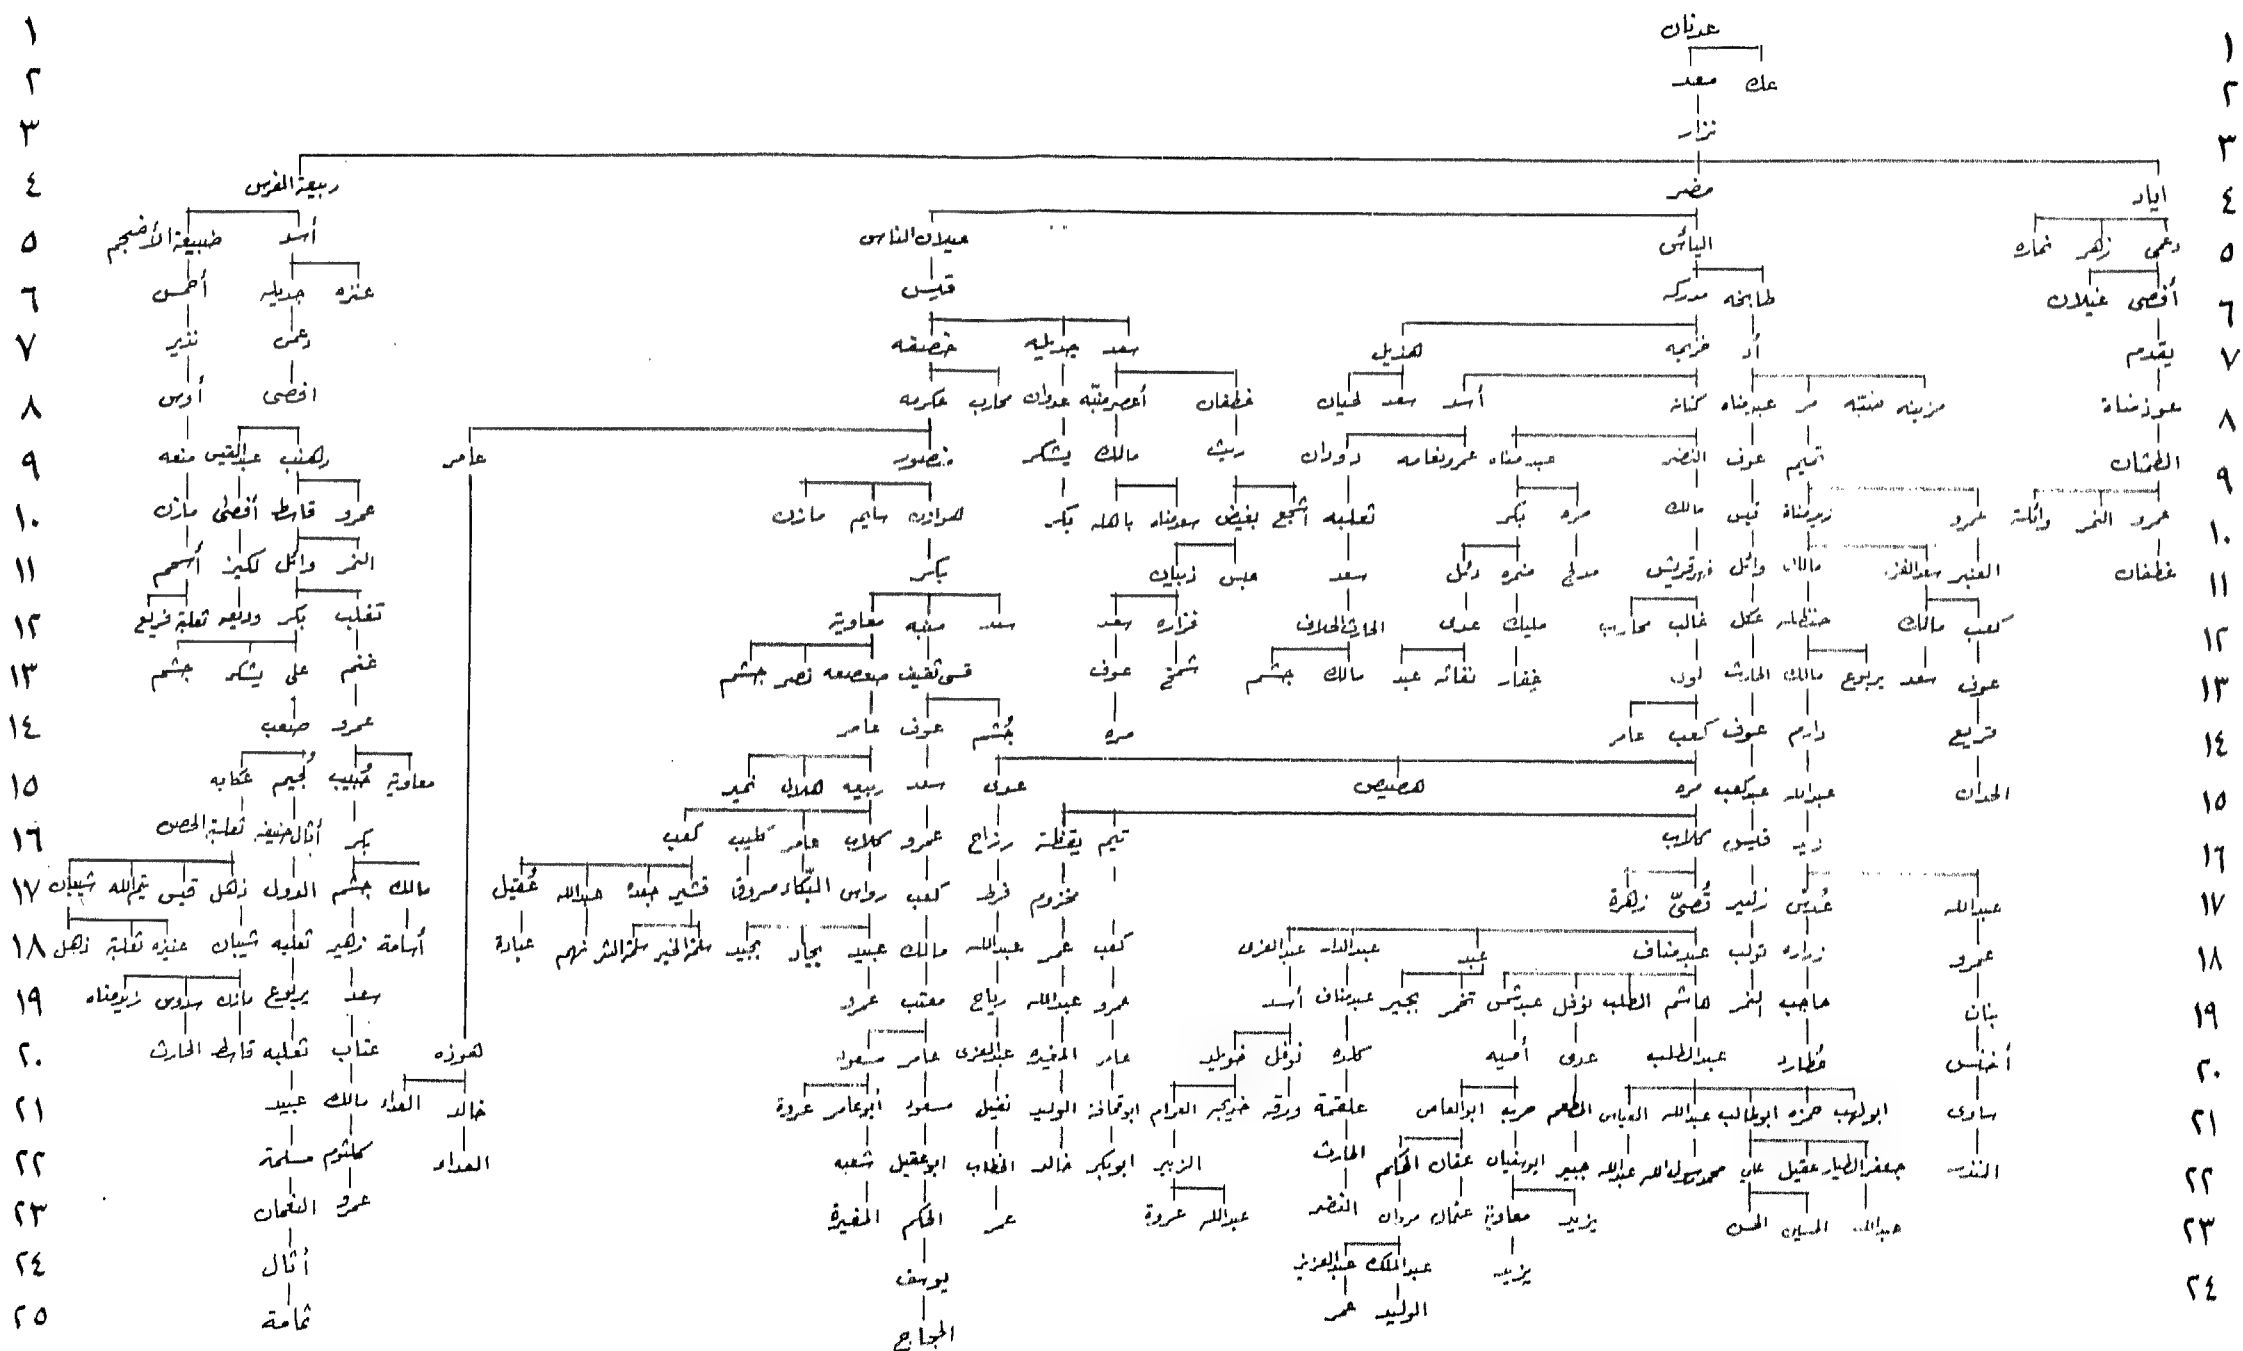 ١ عدنان ١
٢ عك معد ٢
٣ نزار ٣
٤ اياد مضر ربيعة الفرس ٤
٥ دعمى زهر نماره اليأس عيلان الناس أسد ضبيعة الأضجم ٥
٦ أفصى غيلان طابخه مدركه قيس عنزه جديله أحمس ٦
٧ يقدم أد خزيمه هذيل سعد جديله خصفه دعمى نذير ٧
٨ عوذ مناة مزينه ضبته مر عبد مناه كنانه أسد سعد لحيان غطفان أعصر منبّه عدوان محارب عكرمه افصى أوس ٨
٩ الطمثان تميم عوف النضر عبد مناه عمرو نعامه دودان ريث مالك يشكر منصور عامر هنب عبد القيس منعه ٩
١٠ عمرو النمر وائلة عمرو زيد مناة قيس مالك مره بكر ثعلبه أشجع بغيض سعد مناه باهله بكر هوازن سليم مازن عمرو قاسط أفصى مازن ١٠
١١ غطفان العنبر سعد الفزر مالك وائل فهر قريش مدلج ضمره دئل سعد عبس ذبيان بكر النمر وائل لكيز أسحم ١١
١٢ كعب مالك حنظله عكل غالب محارب مليك عدى الحارث الحلاف فزاره سعد سعد منبه معاوية تغلب بكر وديعه ثعلبة ١٢
١٣ عوف سعد يربوع مالك الحارث لوى غفار نفاثه عبد مالك جشم شمخ عوف قسى ثقيف صعصعه نصر جشم غنم على يشكر جشم ١٣
١٤ قريع دارم عوف كعب عامر مره جُشم عوف عامر عمرو صعب ١٤
١٥ الحدان عبدالله عبد كعب مره هصيص عدى سعد ربيعه هلال نمير معاوية حُبيب لُجيم عكابه ١٥
١٦ زيد قيس كلاب تيم يقظة رزاح عمرو كلاب عامر كليب كعب بكر أثال حنيفه ثعلبة الحصن ١٦
١٧ عبدالله عُدس زهير قُصىّ زهرة مخزوم قرط كعب رواس البّكاء قشير جعده عبدالله عُقيل مالك جشم الدول ذهل قيس تيم الله شيبان ١٧
١٨ عمرو زراره تولب عبد مناف عبد عبدالدار عبد العزى كعب عمر عبدالله مالك عبيد بجاد بجيد سلمة الخير سلمة الشر نهم عبادة أسامة زهير ثعلبه شيبان عنزه ثعلبة ذهل ١٨
١٩ بنان حاجب النمر هاشم المطلب نوفل عبدشمس تخمر بجير عبد مناف أسد عمرو عبدالله رياح معتب عمرو سعد يربوع مازن سدوس زيد مناه ١٩
٢٠ أخنس عُطارد عبد المطلب عدى أميه كلده نوفل خويلد عامر المغيره عبدالعزى عامر مسعود هوذه عتاب ثعلبه قاسط الحارث ٢٠
٢١ ساوى ابو لهب حمزه ابو طالب عبدالله العباس المطعم حرب ابو العاص علقمة ورقه خديجه العوام ابو قحافة الوليد نفيل مسعود أبو عامر عروة خالد العداء مالك عبيد ٢١
٢٢ المنذر جعفر الطيار عقيل علي محمد رسول الله عبدالله جبير ابو سفيان عفان الحكم الحارث الزبير ابو بكر خالد الخطاب ابو عقيل شعبه العداء كلثوم مسلمة ٢٢
٢٣ عبدالله الحسين الحسن يزيد معاوية عثمان مروان النضر عبدالله عروة عمر الحكم المغيرة عمرو النعمان ٢٣
٢٤ يزيد عبدالملك عبدالعزيز يوسف أثال ٢٤
الوليد عمر الحجاج ثمامة ٢٥